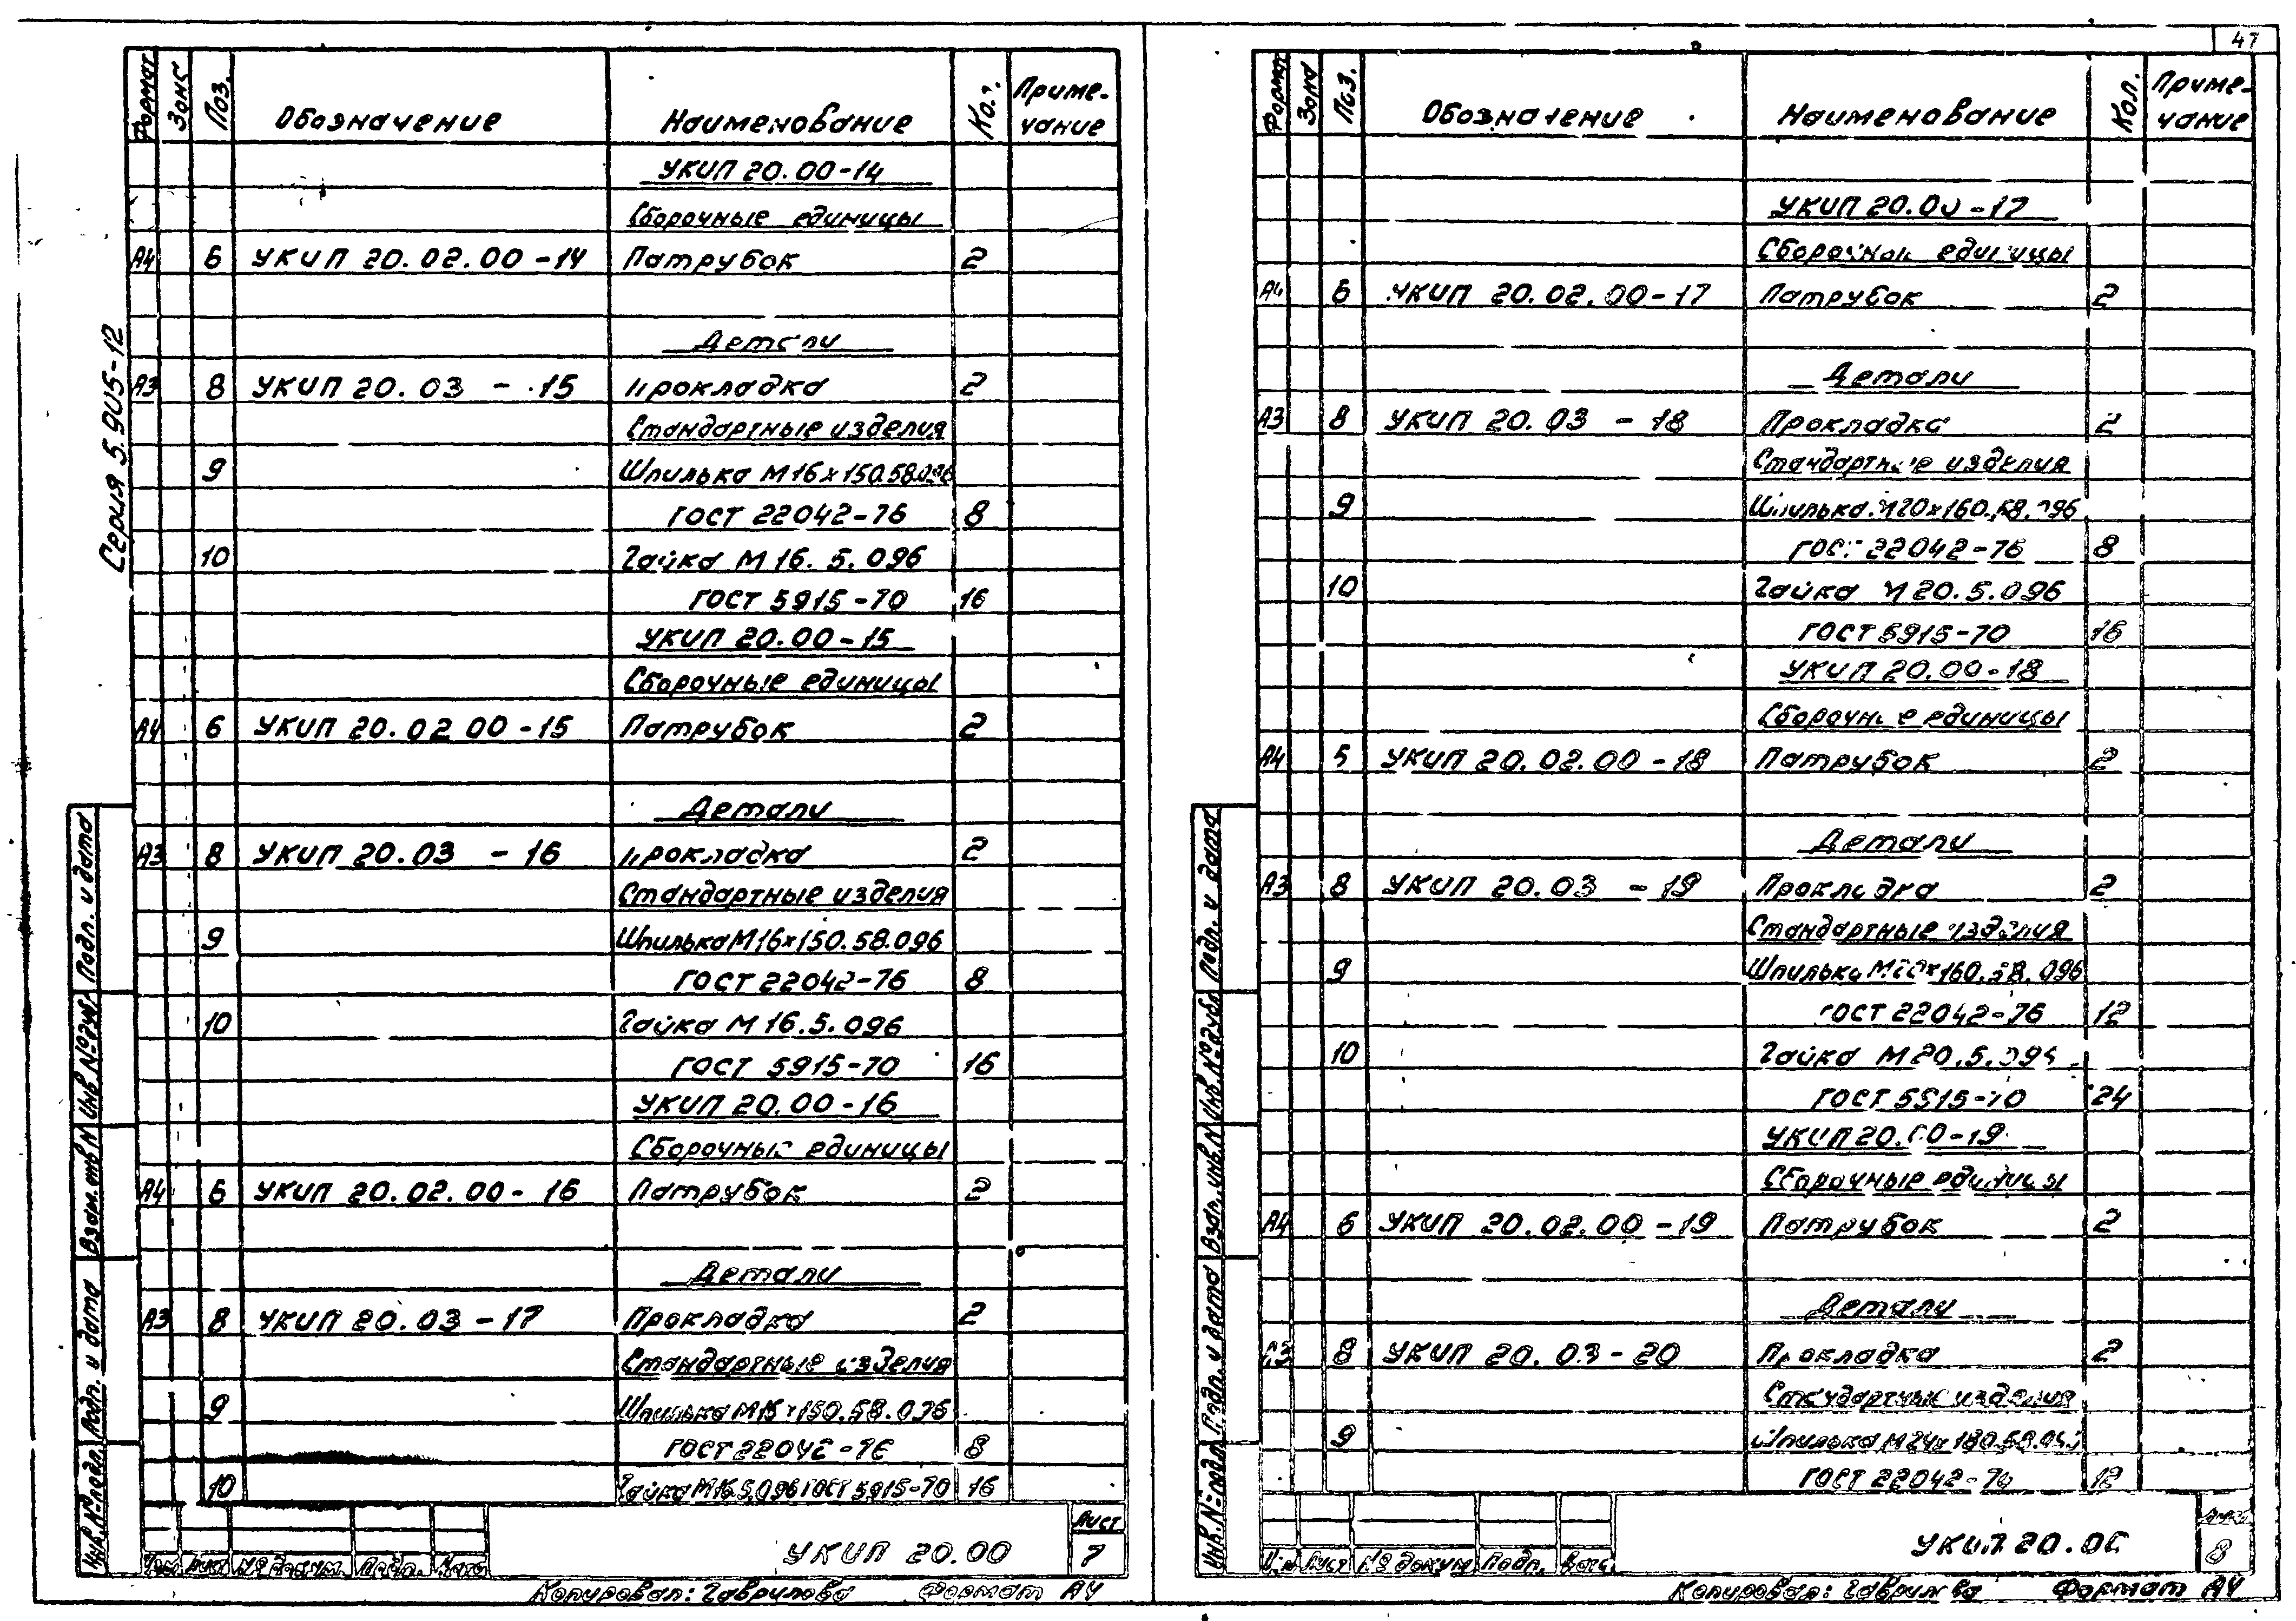 47
Серия 5.905-12
Формат Зона Поз. Обозначение Наименование Кол. Приме-
чание
УКИП 20.00-14
Сборочные единицы
А4 6 УКИП 20.02.00-14 Патрубок 2
Детали
А3 8 УКИП 20.03 - 15 Прокладка 2
Стандартные изделия
9 Шпилька М16х150.58.096
ГОСТ 22042-76 8
10 Гайка М16.5.096
ГОСТ 5915-70 16
УКИП 20.00-15
Сборочные единицы
А4 6 УКИП 20.02 00-15 Патрубок 2
Детали
А3 8 УКИП 20.03 - 16 Прокладка 2
Стандартные изделия
9 Шпилька М16х150.58.096
ГОСТ 22042-76 8
10 Гайка М16.5.096
ГОСТ 5915-70 16
УКИП 20.00-16
Сборочные единицы
А4 6 УКИП 20.02.00-16 Патрубок 2
Детали
А3 8 УКИП 20.03-17 Прокладка 2
Стандартные изделия
9 Шпилька М16х150.58.096
ГОСТ 22042-76 8
10 Гайка М16.5.096 ГОСТ 5915-70 16
Инв. № подл. Подп. и дата Взам. инв. № Инв. № дубл. Подп. и дата
Изм Лист № докум. Подп. Дата
УКИП 20.00
Лист
7
Копировал: Гаврилова Формат А4
Формат Зона Поз. Обозначение Наименование Кол. Приме-
чание
УКИП 20.00-17
Сборочные единицы
А4 6 УКИП 20.02.00-17 Патрубок 2
Детали
А3 8 УКИП 20.03 - 18 Прокладка 2
Стандартные изделия
9 Шпилька М20х160.58.096
ГОСТ 22042-76 8
10 Гайка М20.5.096
ГОСТ 5915-70 16
УКИП 20.00-18
Сборочные единицы
А4 5 УКИП 20.02.00-18 Патрубок 2
Детали
А3 8 УКИП 20.03 - 19 Прокладка 2
Стандартные изделия
9 Шпилька М20х160.58.096
ГОСТ 22042-76 12
10 Гайка М20.5.096
ГОСТ 5915-70 24
УКИП 20.00-19
Сборочные единицы
А4 6 УКИП 20.02.00-19 Патрубок 2
Детали
А3 8 УКИП 20.03-20 Прокладка 2
Стандартные изделия
9 Шпилька М24х180.58.096
ГОСТ 22042-76 12
Инв. № подл. Подп. и дата Взам. инв. № Инв. № дубл. Подп. и дата
Изм Лист № докум. Подп. Дата
УКИП 20.00
Лист
8
Копировал: Гаврилова Формат А4